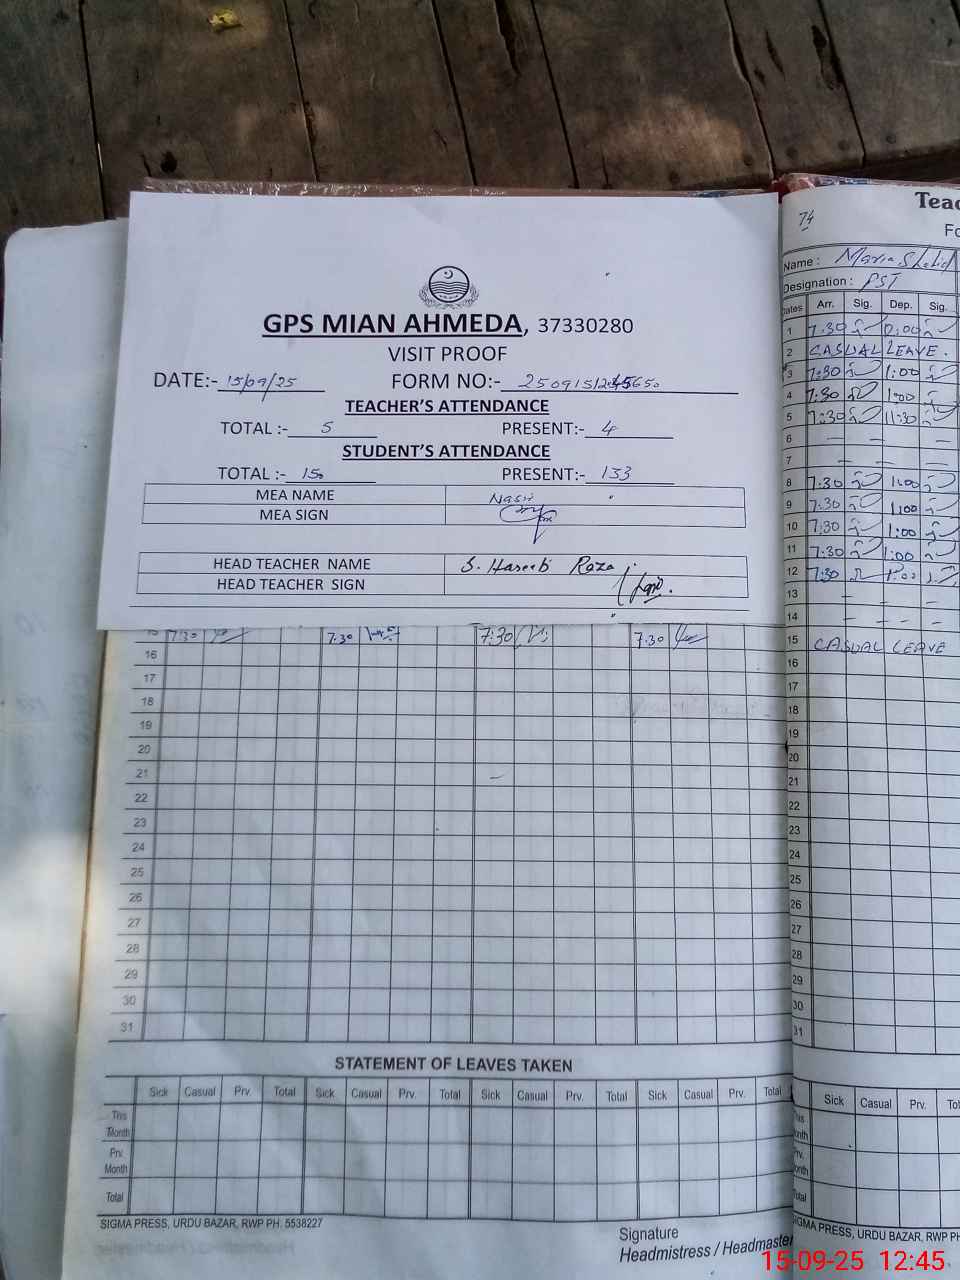 GPS MIAN AHMEDA, 37330280
VISIT PROOF
DATE:- 15/09/25 FORM NO:-
TEACHER'S ATTENDANCE
TOTAL :- 5 PRESENT:- 4
STUDENT'S ATTENDANCE
TOTAL :- 150 PRESENT:- 133
MEA NAME Nasir
MEA SIGN
HEAD TEACHER NAME S. Haseeb Raza
HEAD TEACHER SIGN
15 7:30 7:30 7:30 7:30
16
17
18
19
20
21
22
23
24
25
26
27
28
29
30
31
STATEMENT OF LEAVES TAKEN
Sick Casual Prv. Total Sick Casual Prv. Total Sick Casual Prv. Total Sick Casual Prv. Total
This Month
Prv. Month
Total
SIGMA PRESS, URDU BAZAR, RWP PH: 5538227
Signature
Headmistress / Headmaster
74
Teac
Fo
Name : Maria Shahid
Designation : PST
Dates Arr. Sig. Dep. Sig.
1 7:30
2 CASUAL LEAVE.
3 7:30 1:00
4 7:30 1:00
5 7:30 11:30
6 — — —
7 — — —
8 7:30 1:00
9 7:30 1:00
10 7:30 1:00
11 7:30 1:00
12 7:30 1:00
13 — — —
14 — — — —
15 CASUAL LEAVE
16
17
18
19
20
21
22
23
24
25
26
27
28
29
30
31
Sick Casual Prv. Tot
This Month
Prv. Month
Total
SIGMA PRESS, URDU BAZAR, RWP PH
15-09-25 12:45